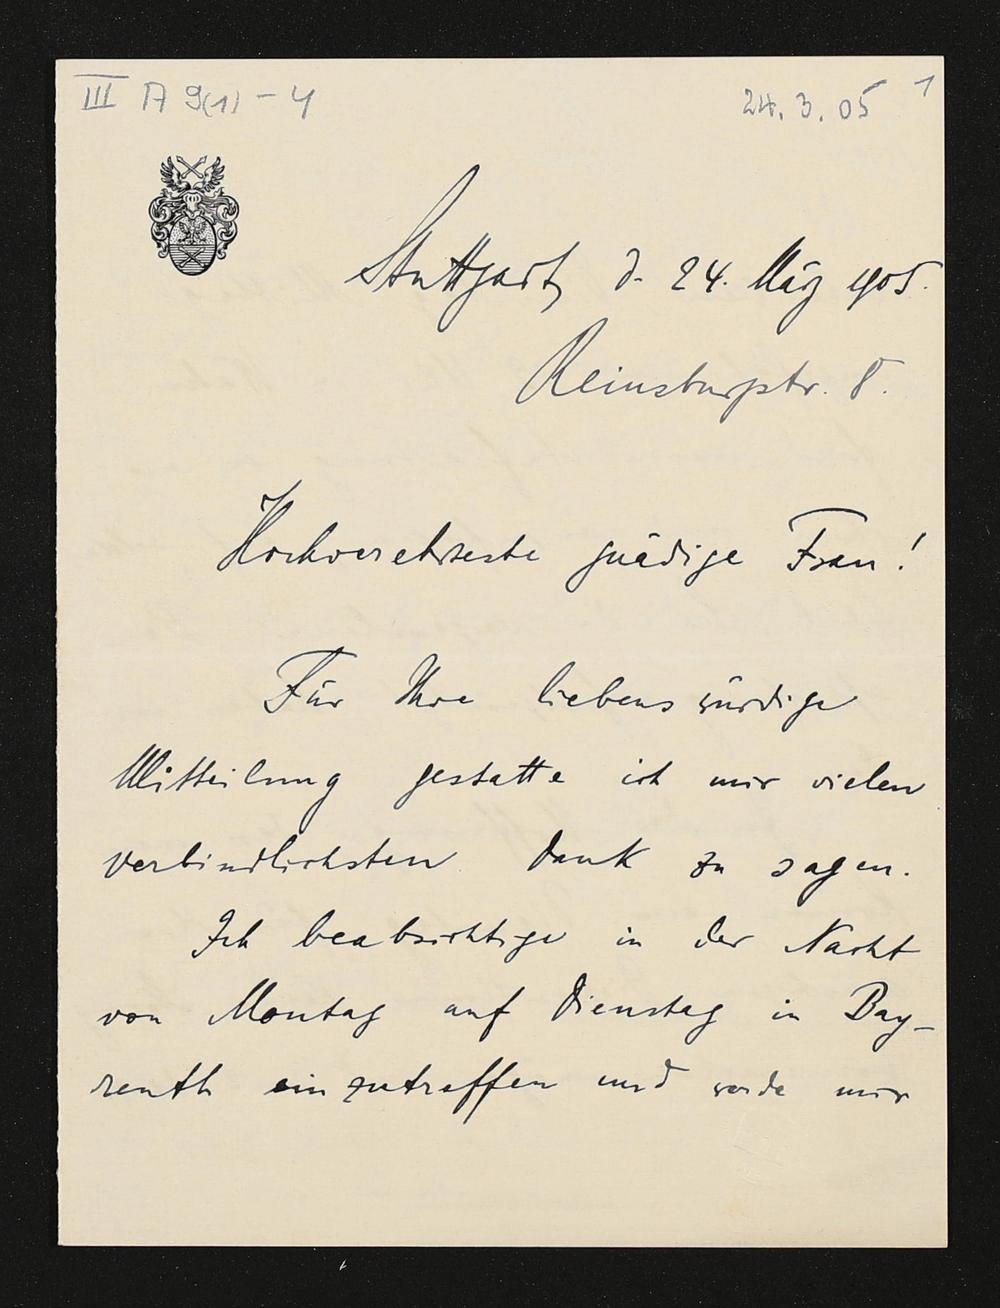 III A 9(1) – 4
24. 3. 05
1
Stuttgart, d. 24. März 1905.
Reinsburgstr. 8.
Hochverehrteste gnädige Frau!
Für Ihre liebenswürdige
Mitteilung gestatte ich mir vielen
verbindlichsten Dank zu sagen.
Ich beabsichtige in der Nacht
von Montag auf Dienstag in Bay-
reuth einzutreffen und werde mir